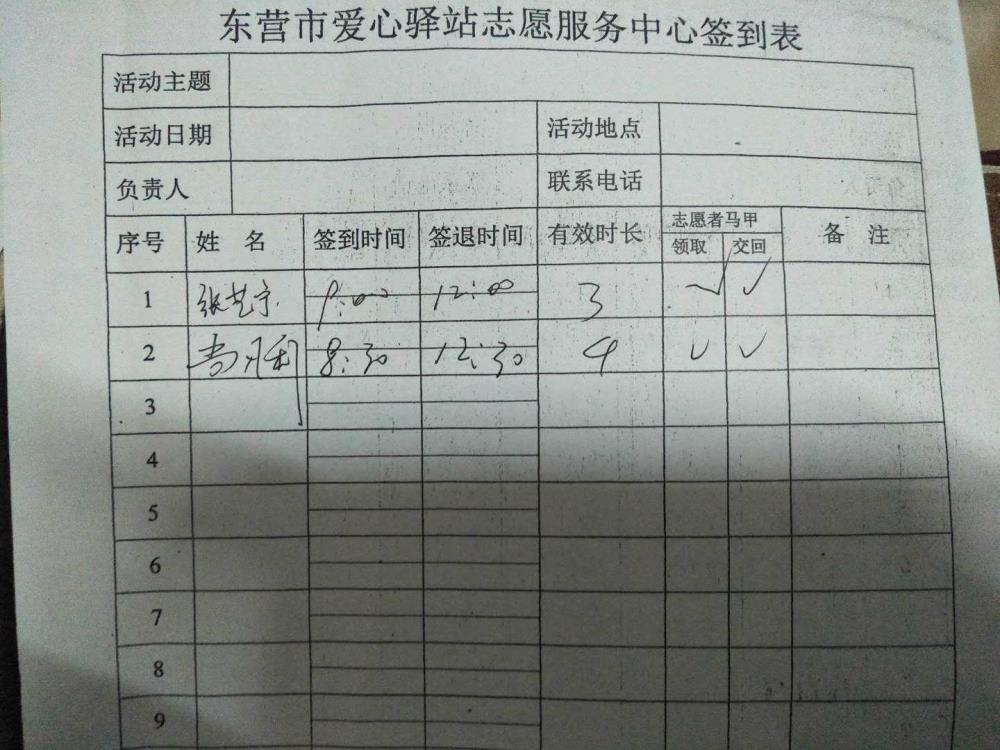 东营市爱心驿站志愿服务中心签到表
活动主题
活动日期 活动地点
负责人 联系电话
序号 姓 名 签到时间 签退时间 有效时长 志愿者马甲 备 注
领取 交回
1 张艺宁 9:00 12:00 3 √ √
2 8:30 12:30 4 √ √
3
4
5
6
7
8
9